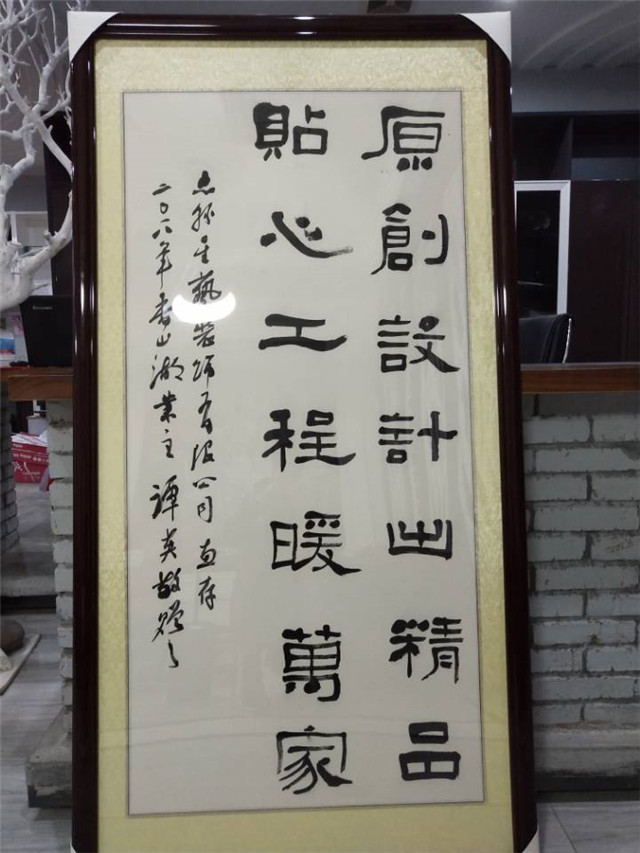 原創設計出精品
貼心工程暖萬家
星藝裝飾有限公司惠存
二〇一八年香山湖業主譚英敬贈